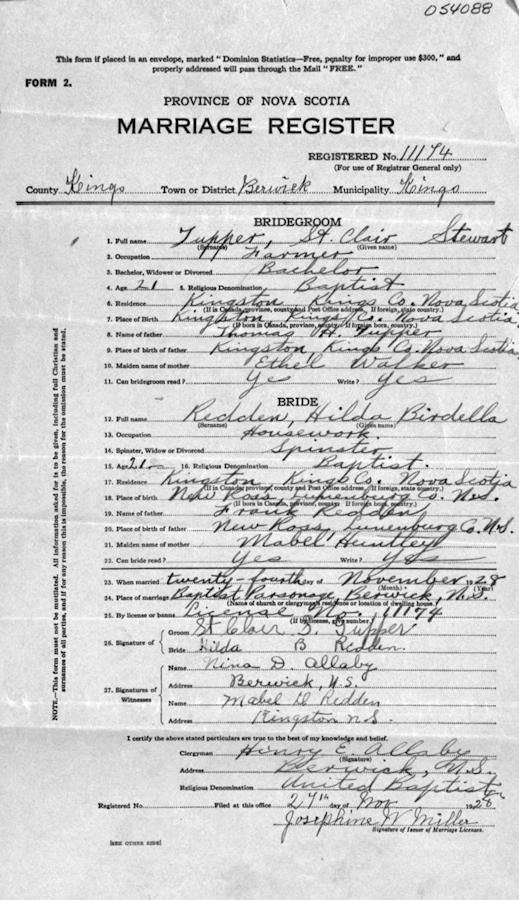 054088
This form if placed in an envelope, marked "Dominion Statistics—Free, penalty for improper use $300," and
properly addressed will pass through the Mail "FREE."
FORM 2.
PROVINCE OF NOVA SCOTIA
MARRIAGE REGISTER
REGISTERED No. 11194
(For use of Registrar General only)
County Kings Town or District Berwick Municipality Kings
BRIDEGROOM
1. Full name Tupper, St. Clair Stewart
(Surname) (Given name)
2. Occupation Farmer
3. Bachelor, Widower or Divorced Bachelor
4. Age 21 5. Religious Denomination Baptist
6. Residence Kingston Kings Co. Nova Scotia
(If in Canada, province, county and Post Office address, If foreign, state country)
7. Place of Birth Kingston Kings Co. Nova Scotia
(If born in Canada, province, county. If foreign born, country.)
8. Name of father Thomas H. Tupper
9. Place of birth of father Kingston Kings Co. Nova Scotia
10. Maiden name of mother Ethel Walker
11. Can bridegroom read? Yes Write? Yes
BRIDE
12. Full name Redden, Hilda Birdella
(Surname) (Given name)
13. Occupation Housework
14. Spinster, Widow or Divorced Spinster
15. Age 21 16. Religious Denomination Baptist.
17. Residence Kingston Kings Co. Nova Scotia
(If in Canada, province, county and Post Office address, If foreign, state country)
18. Place of birth New Ross, Lunenburg Co. N.S.
(If born in Canada, province, county. If foreign born, country.)
19. Name of father Frank Redden
20. Place of birth of father New Ross, Lunenburg Co. N.S.
21. Maiden name of mother Mabel Huntley
22. Can bride read? Yes Write? Yes
23. When married twenty-fourth day of November 1928
(Month) (Year)
24. Place of marriage Baptist Parsonage, Berwick, N.S.
(Name of church or clergyman's residence or location of dwelling house.)
25. By license or banns License No. 11194
(If by license, give number.)
26. Signature of Groom St Clair S. Tupper
Bride Hilda B Redden.
27. Signatures of Witnesses Name Nina D. Allaby
Address Berwick, N.S.
Name Mabel D Redden
Address Kingston N.S.
I certify the above stated particulars are true to the best of my knowledge and belief.
Clergyman Henry E. Allaby
(Signature)
Address Berwick, N.S.
Religious Denomination United Baptist
Registered No. Filed at this office 27th day of Nov 1928
Josephine W Miller
Signature of Issuer of Marriage Licenses.
[SEE OTHER SIDE]
NOTE.—This form must not be mutilated. All information asked for is to be given, including full Christian and
surnames of all parties, and if for any reason this is impossible, the reason for the omission must be stated.